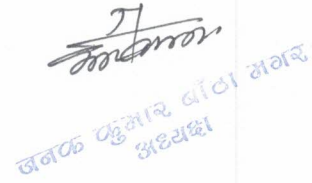 जनक कुमार बाँठा मगर
अध्यक्ष